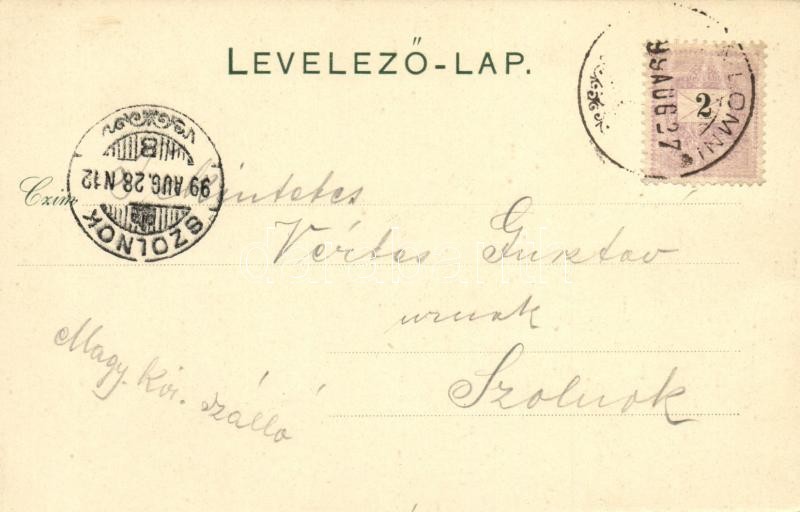 LEVELEZŐ-LAP.
LOMNI
99 AUG 27
2
SZOLNOK
99 AUG. 28 N 12
B
Czim
Tekintetes
Vértes Gusztav
urnak
Szolnok
Magy. Kir. szálló